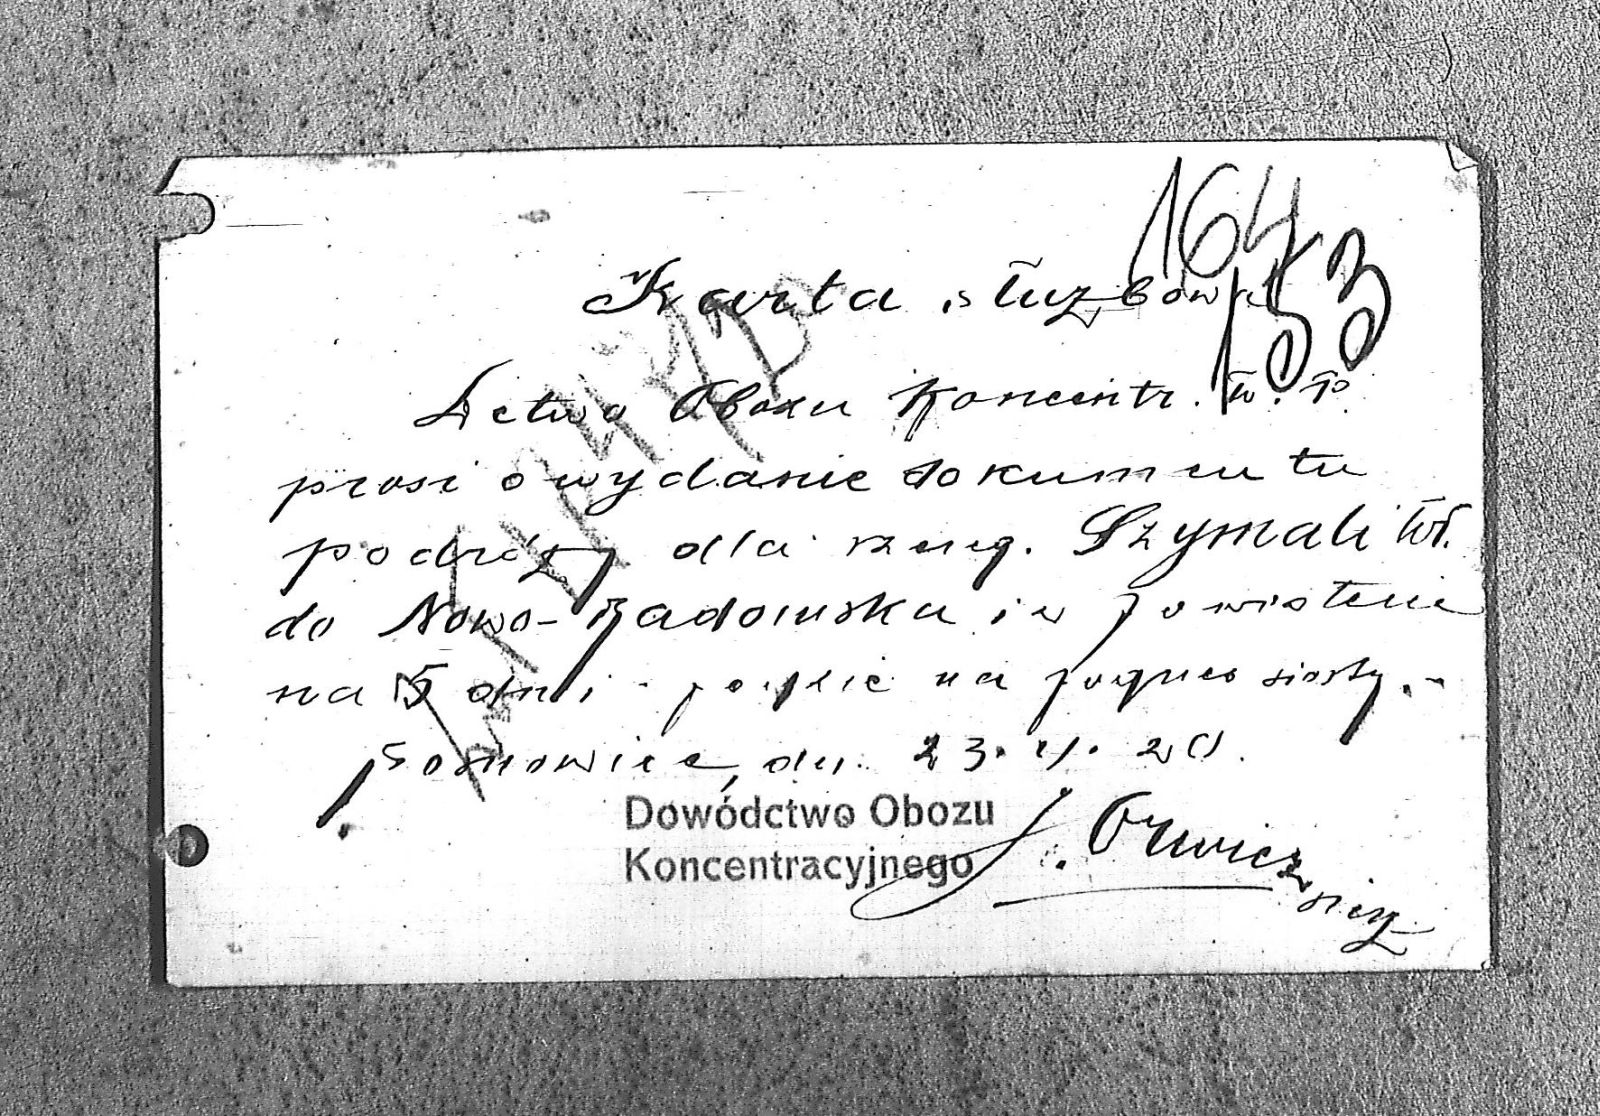 164
153
Karta służbowa
Dctwo Obozu Koncentr. W. P.
prosi o wydanie dokumentu
podróży dla szereg. Szymali Wł.
do Nowo-Radomska i w powrotem
na 5 dni - na pogrzeb siostry.-
Sosnowiec, dn. 23. 20.
Dowództwo Obozu
Koncentracyjnego